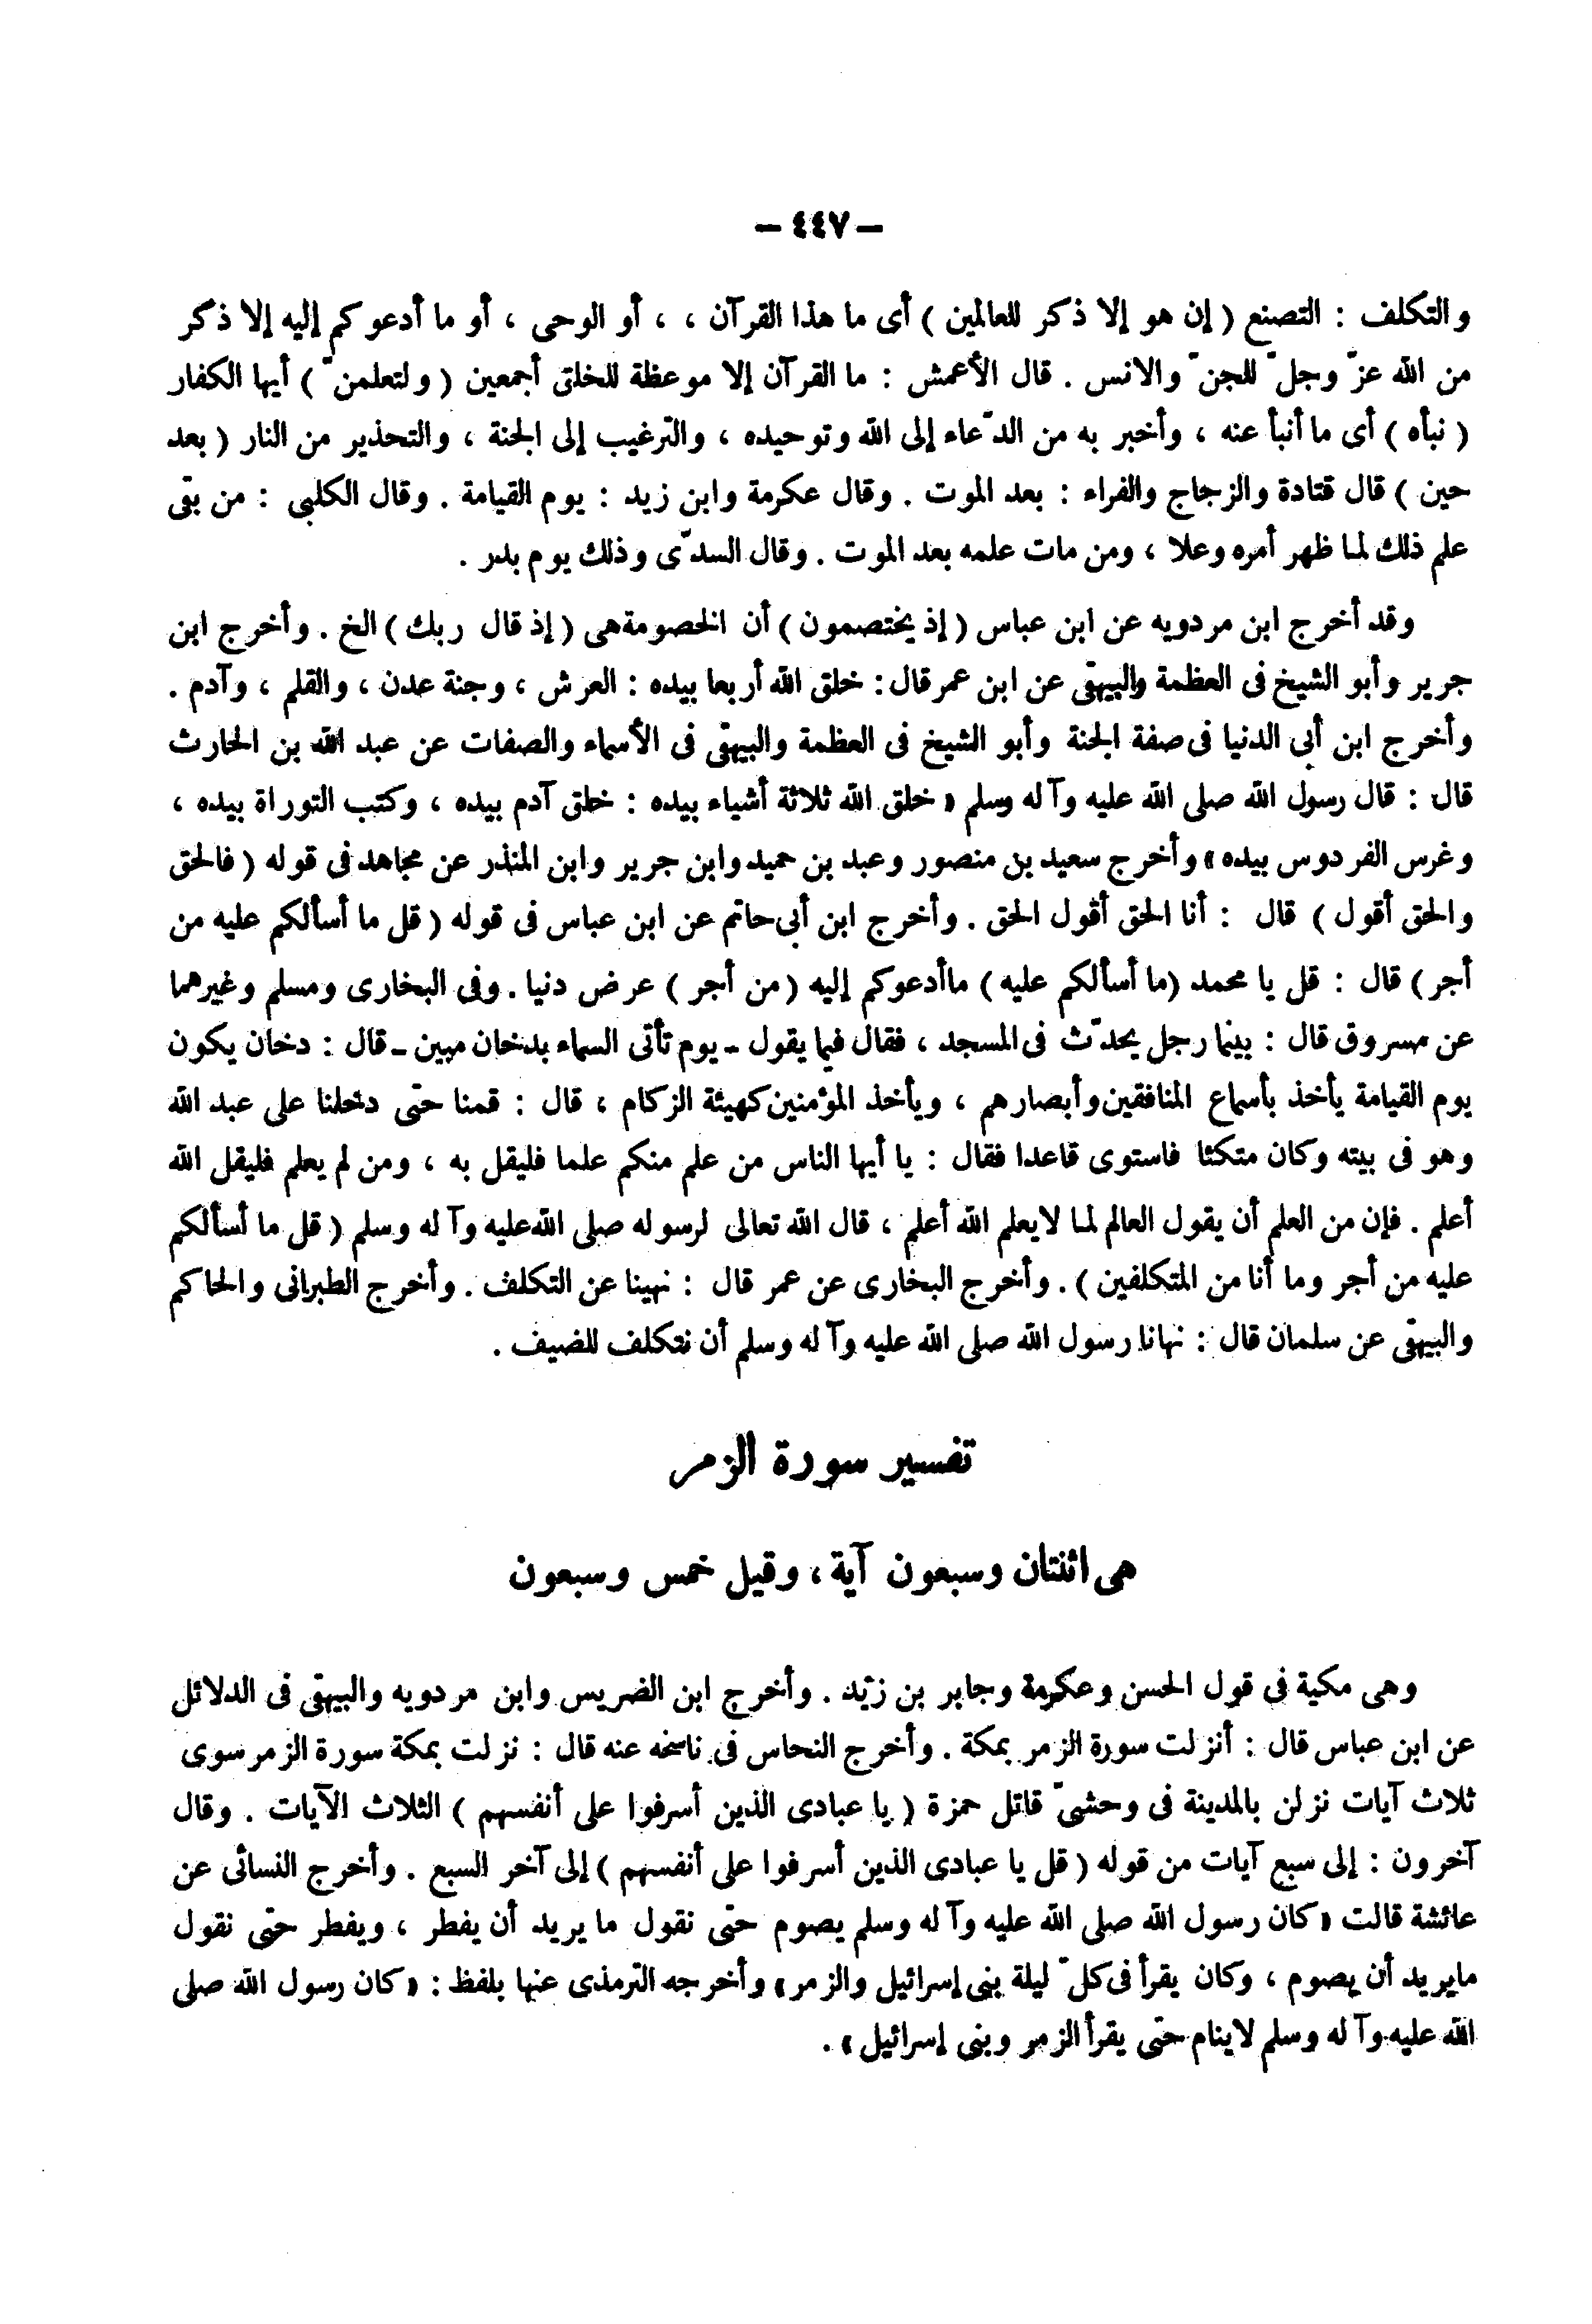 — ٤٤٧ —
والتكلف : التصنع ( إن هو إلا ذكر للعالمين ) أى ما هذا القرآن ، ، أو الوحى ، أو ما أدعوكم إليه إلا ذكر
من الله عزّ وجلّ للجنّ والانس . قال الأعمش : ما القرآن إلا موعظة للخلق أجمعين ( ولتعلمنّ ) أيها الكفار
( نبأه ) أى ما أنبأ عنه ، وأخبر به من الدّعاء إلى الله وتوحيده ، والترغيب إلى الجنة ، والتحذير من النار ( بعد
حين ) قال قتادة والزجاج والفراء : بعد الموت . وقال عكرمة وابن زيد : يوم القيامة . وقال الكلبى : من بقى
علم ذلك لما ظهر أمره وعلا ، ومن مات علمه بعد الموت . وقال السدّى وذلك يوم بدر .
وقد أخرج ابن مردويه عن ابن عباس ( إذ يختصمون ) أن الخصومة هى ( إذ قال ربك ) الخ . وأخرج ابن
جرير وأبو الشيخ فى العظمة والبيهقى عن ابن عمر قال : خلق الله أربعا بيده : العرش ، وجنة عدن ، والقلم ، وآدم .
وأخرج ابن أبى الدنيا فى صفة الجنة وأبو الشيخ فى العظمة والبيهقى فى الأسماء والصفات عن عبد الله بن الحارث
قال : قال رسول الله صلى الله عليه وآله وسلم « خلق الله ثلاثة أشياء بيده : خلق آدم بيده ، وكتب التوراة بيده ،
وغرس الفردوس بيده » وأخرج سعيد بن منصور وعبد بن حميد وابن جرير وابن المنذر عن مجاهد فى قوله ( فالحق
والحق أقول ) قال : أنا الحق أقول الحق . وأخرج ابن أبى حاتم عن ابن عباس فى قوله ( قل ما أسألكم عليه من
أجر ) قال : قل يا محمد ( ما أسألكم عليه ) ما أدعوكم إليه ( من أجر ) عرض دنيا . وفى البخارى ومسلم وغيرهما
عن مسروق قال : بينما رجل يحدّث فى المسجد ، فقال فيما يقول - يوم تأتى السماء بدخان مبين - قال : دخان يكون
يوم القيامة يأخذ بأسماع المنافقين وأبصارهم ، ويأخذ المؤمنين كهيئة الزكام ، قال : قمنا حتى دخلنا على عبد الله
وهو فى بيته وكان متكئا فاستوى قاعدا فقال : يا أيها الناس من علم منكم علما فليقل به ، ومن لم يعلم فليقل الله
أعلم . فإن من العلم أن يقول العالم لما لا يعلم الله أعلم ، قال الله تعالى لرسوله صلى الله عليه وآله وسلم ( قل ما أسألكم
عليه من أجر وما أنا من المتكلفين ) . وأخرج البخارى عن عمر قال : نهينا عن التكلف . وأخرج الطبرانى والحاكم
والبيهقى عن سلمان قال : نهانا رسول الله صلى الله عليه وآله وسلم أن نتكلف للضيف .
تفسير سورة الزمر
هى اثنتان وسبعون آية ، وقيل خمس وسبعون
وهى مكية فى قول الحسن وعكرمة وجابر بن زيد . وأخرج ابن الضريس وابن مردويه والبيهقى فى الدلائل
عن ابن عباس قال : أنزلت سورة الزمر بمكة . وأخرج النحاس فى ناسخه عنه قال : نزلت بمكة سورة الزمر سوى
ثلاث آيات نزلن بالمدينة فى وحشىّ قاتل حمزة ( يا عبادى الذين أسرفوا على أنفسهم ) الثلاث الآيات . وقال
آخرون : إلى سبع آيات من قوله ( قل يا عبادى الذين أسرفوا على أنفسهم ) إلى آخر السبع . وأخرج النسائى عن
عائشة قالت « كان رسول الله صلى الله عليه وآله وسلم يصوم حتى نقول ما يريد أن يفطر ، ويفطر حتى نقول
ما يريد أن يصوم ، وكان يقرأ فى كلّ ليلة بنى إسرائيل والزمر » وأخرجه الترمذى عنها بلفظ : « كان رسول الله صلى
الله عليه وآله وسلم لا ينام حتى يقرأ الزمر وبنى إسرائيل » .